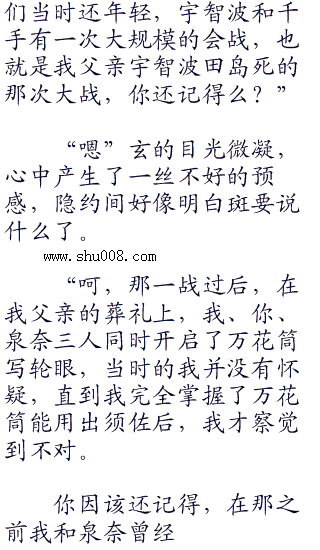 们当时还年轻，宇智波和千
手有一次大规模的会战，也
就是我父亲宇智波田岛死的
那次大战，你还记得么？”
“嗯”玄的目光微凝，
心中产生了一丝不好的预
感，隐约间好像明白斑要说
什么了。
www.shu008.com
“呵，那一战过后，在
我父亲的葬礼上，我、你、
泉奈三人同时开启了万花筒
写轮眼，当时的我并没有怀
疑，直到我完全掌握了万花
筒能用出须佐后，我才察觉
到不对。
你因该还记得，在那之
前我和泉奈曾经